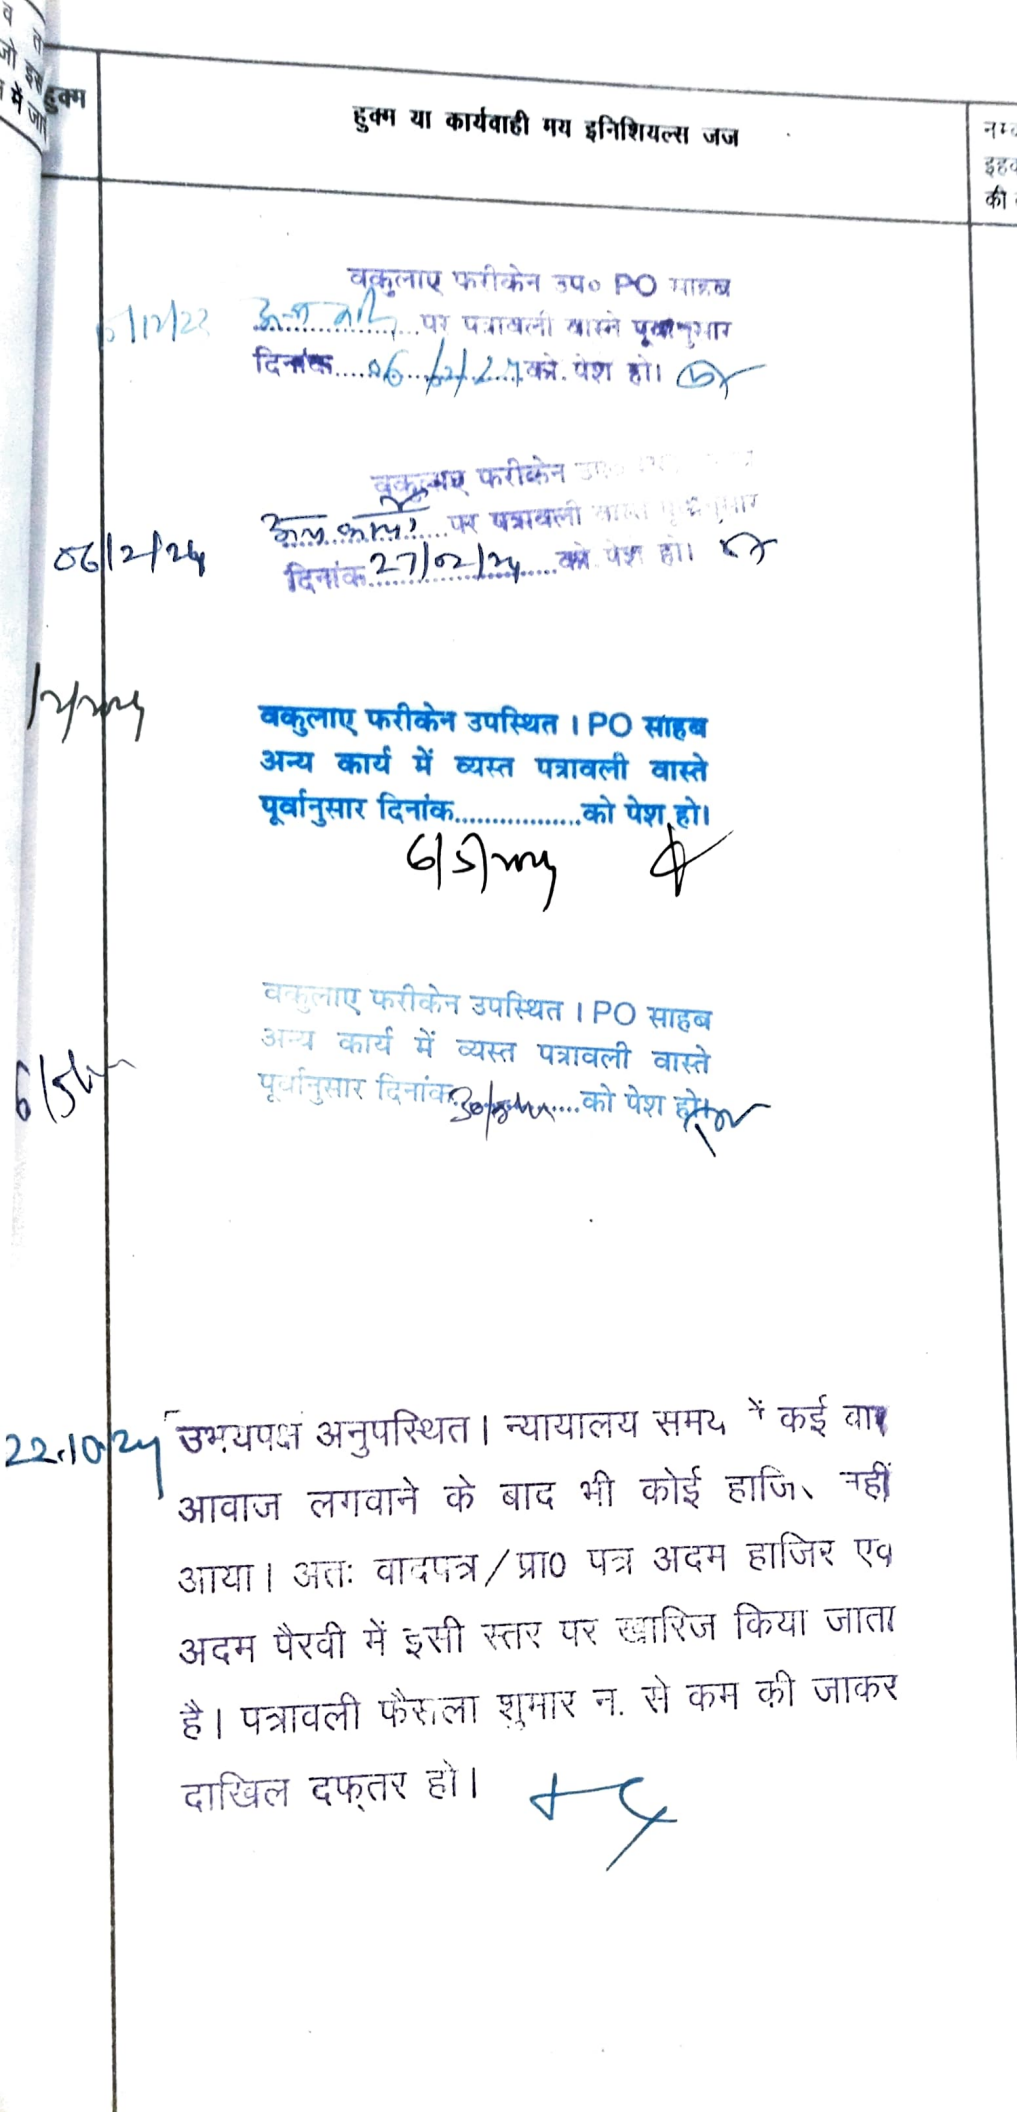 व त
जो इस
में जा
हुक्म
हुक्म या कार्यवाही मय इनिशियल्स जज
नम्ब
इहव
की
वकुलाए फरीकेन उप० PO साहब
पर पत्रावली वास्ते पूर्वानुसार
दिनांक को पेश हो।
वकुलाए फरीकेन
पर पत्रावली
06/2/24
दिनांक 27/02/24 को पेश हो।
वकुलाए फरीकेन उपस्थित । PO साहब
अन्य कार्य में व्यस्त पत्रावली वास्ते
पूर्वानुसार दिनांक.................को पेश हो।
वकुलाए फरीकेन उपस्थित । PO साहब
अन्य कार्य में व्यस्त पत्रावली वास्ते
पूर्वानुसार दिनांक को पेश हो।
22.10.24
उभयपक्ष अनुपस्थित । न्यायालय समय में कई बार
आवाज लगवाने के बाद भी कोई हाजिर नहीं
आया । अतः वादपत्र / प्रा0 पत्र अदम हाजिर एव
अदम पैरवी में इसी स्तर पर खारिज किया जाता
है । पत्रावली फैसला शुमार न. से कम की जाकर
दाखिल दफ्तर हो ।